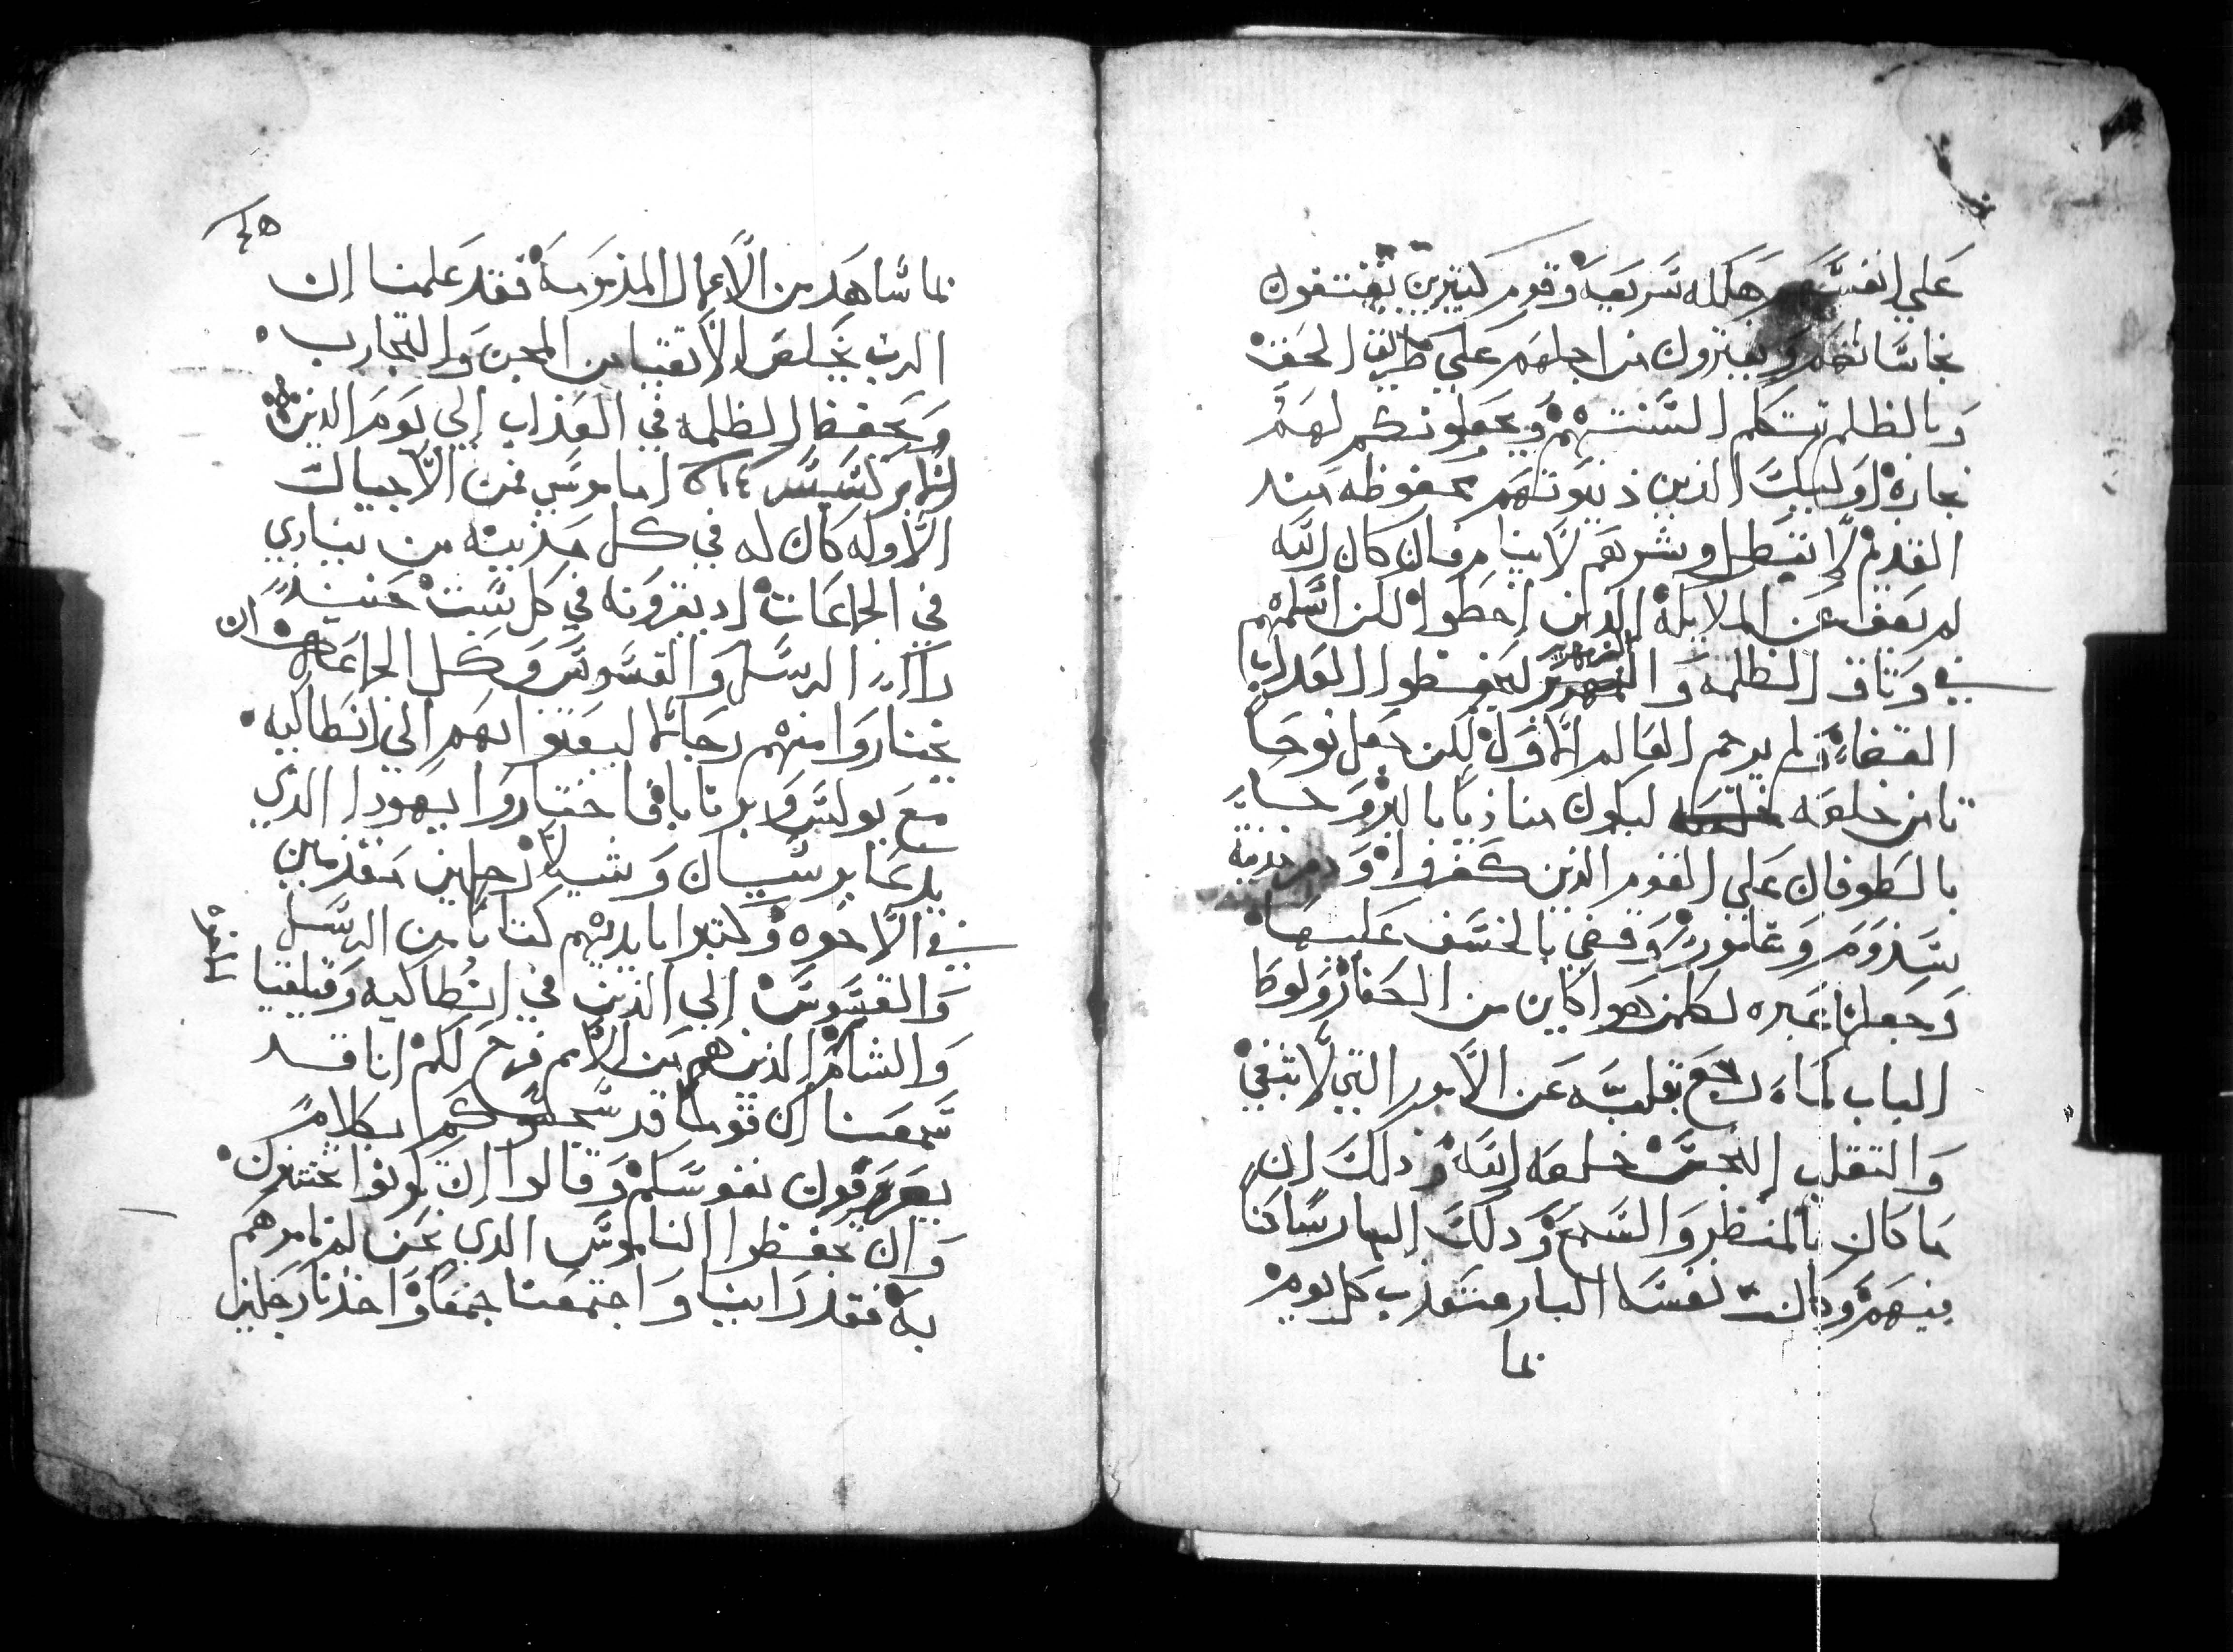 علي انفسهم هلكه سريعه وقوم كتيرين يقتفون
نجاساتهم ويفترون من اجلهم علي طريق الحق
وبالظلم تتكلم السنتهم ويجعلونكم لهم
تجاره اوليك الذين دينونتهم محفوظه منذ
القديم لا تبطل وشرهم لا ينام فان كان الله
لم يعف عن الملايكه الذين اخطوا لكن اسلمهم
في وتاق الظلمه والزمهرير ليحفظوا الي عداب
القضاء ولم يرحم العالم الاول لكن جعل نوحا
تامن خلقه ليكون مناديا بالبر وجا
بالطوفان علي القوم الذين كفروا ومدينة
سذوم وعامورا وقضي بالخسف عليها
وجعلها عبره لكلمن هو كاين من الكفار ولوطا
البار لما رجع بقلبه عن الامور التي لا تنبغي
والتقلب النجس خلصه الله وذلك ان
ما كان بالمنظر والسمع وذلك البار ساكنا
فيهم وكانت نفسه الباره تتعذب كل يوم
بما
٤٥
بما شاهد من الاعمال المذمومة فقد علمنا ان
الرب يخلص الاتقيا من المحن والتجارب
ويحفظ الظلمه في العذاب الي يوم الدين
الابركسيس اما موسي فمن الاجيال
الاوله كان له في كل مدينه من ينادي
في الجماعات اد يقرونه في كل سبت حينيد
راا الرسل والقسوس وكل الجماعه ان
يختاروا منهم رجالا ليبعتوا بهم الي انطاكيه
مع بولس وبرنابا فاختاروا يهودا الذي
يدعا برسبان وشيلا رجلين متقدمين
في الاخوه وكتبوا بايديهم كتابا من الرسل
والقسوس الي الذين في انطاكيه وقيلقيا
والشام الذين هم من الامم فرح لكم انا قد
سمعنا ان قوما قد سجسوكم بكلام
يصرفون نفوسكم وقالوا ان تكونوا تختتنون
وان تحفظوا الناموس الدي نحن لم نامرهم
به فقد راينا واجتمعنا جمعا واخذنا رجلين